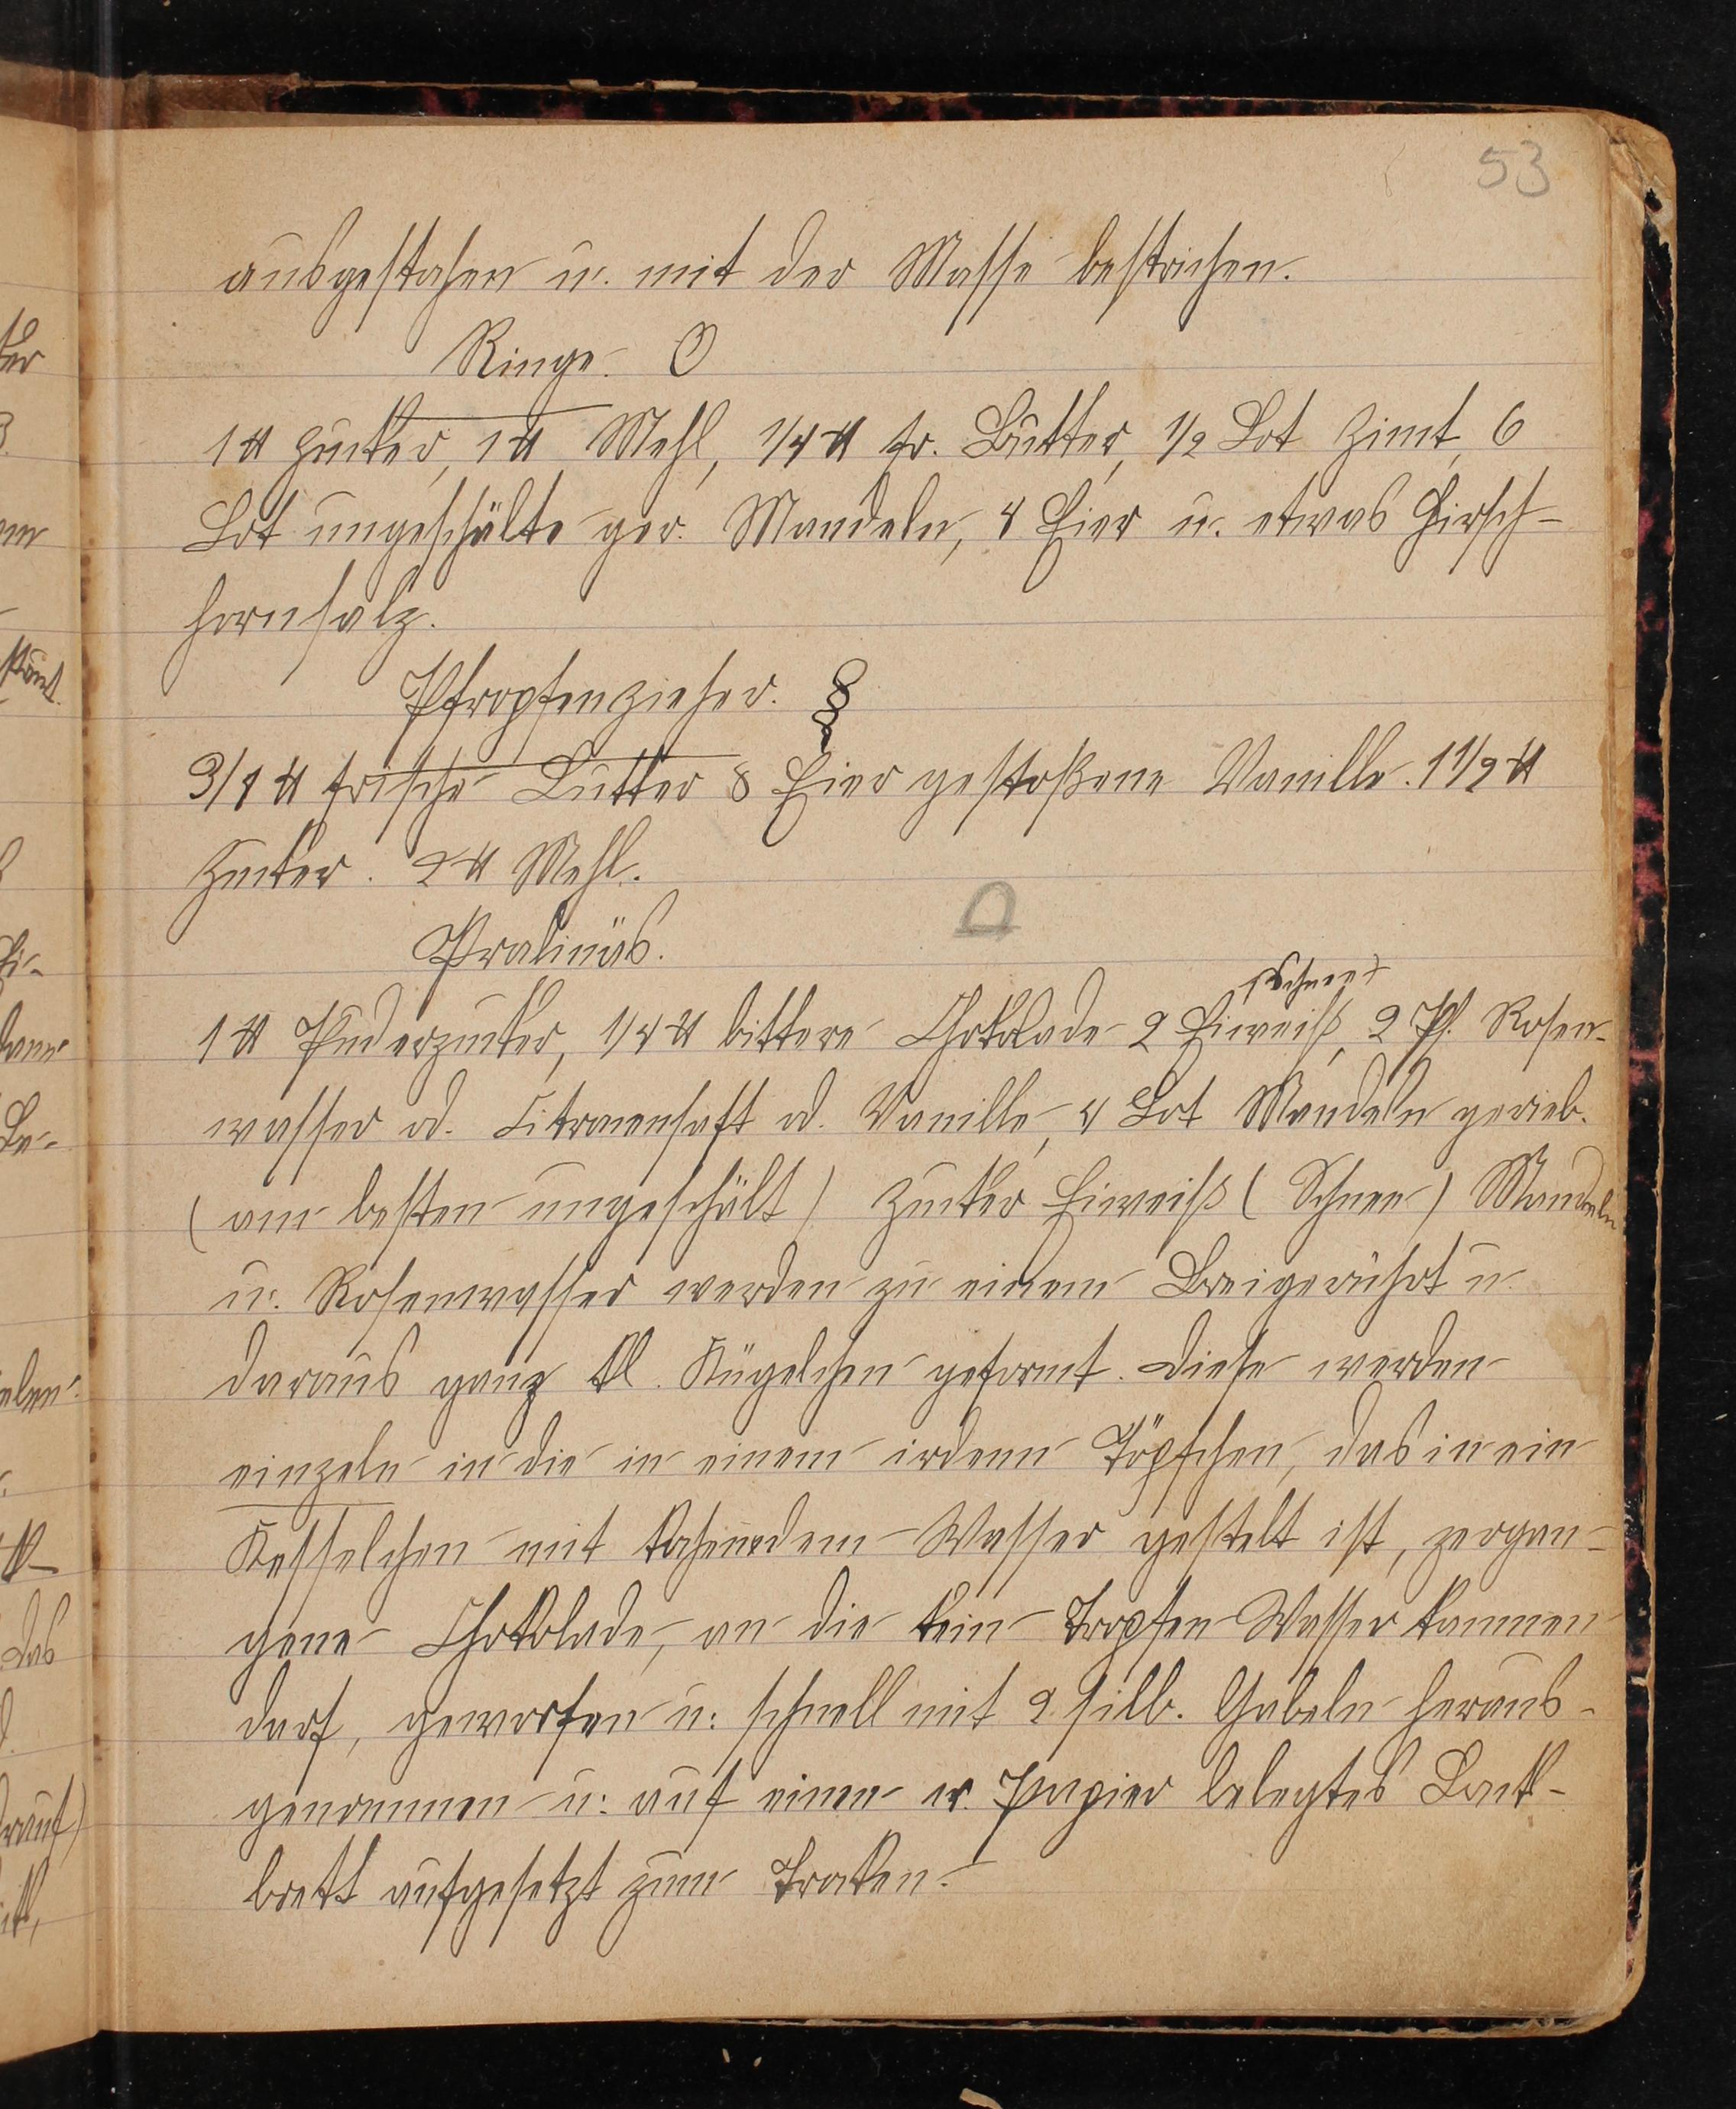 53
ausgestochen u. mit der Masse bestrichen.
Ringe. O
1 ℔ Zucker, 1 ℔ Mehl, 1/4 ℔ fr. Butter, 1/2 Lot Zimt, 6
Lot ungeschälte ger. Mandeln, 4 Eier u. etwas Hirsch-
hornsalz.
Pfropfenzieher.
3/4 ℔ frische Butter 8 Eier gestoßene Vanille. 1 1/2 ℔
Zucker. 2 ℔ Mehl.
Pralinüs.
(Schnee)
1 ℔ Puderzucker, 1/4 ℔ bittere Chokolade 2 Eiweiß, 2 Pf. Rosen-
wasser od. Citronensaft od. Vanille, 4 Lot Mandeln gerieb.
(am besten ungeschält) Zucker Eiweiß (Schnee) Mandeln
u. Rosenwasser werden zu einem Brei gerührt u.
daraus ganz kl. Kügelchen geformt. Diese werden
einzeln in die in einem irdenen Töpfchen, das in ein
Kesselchen mit kochendem Wasser gestelt ist, zergan-
gene Chokolade, an die kein Tropfen Wasser kommen
darf, geworfen u. schnell mit 2 silb. Gabeln heraus-
genommen u. auf einen Papier belegtes Back-
brett aufgesetzt zum Trocken.